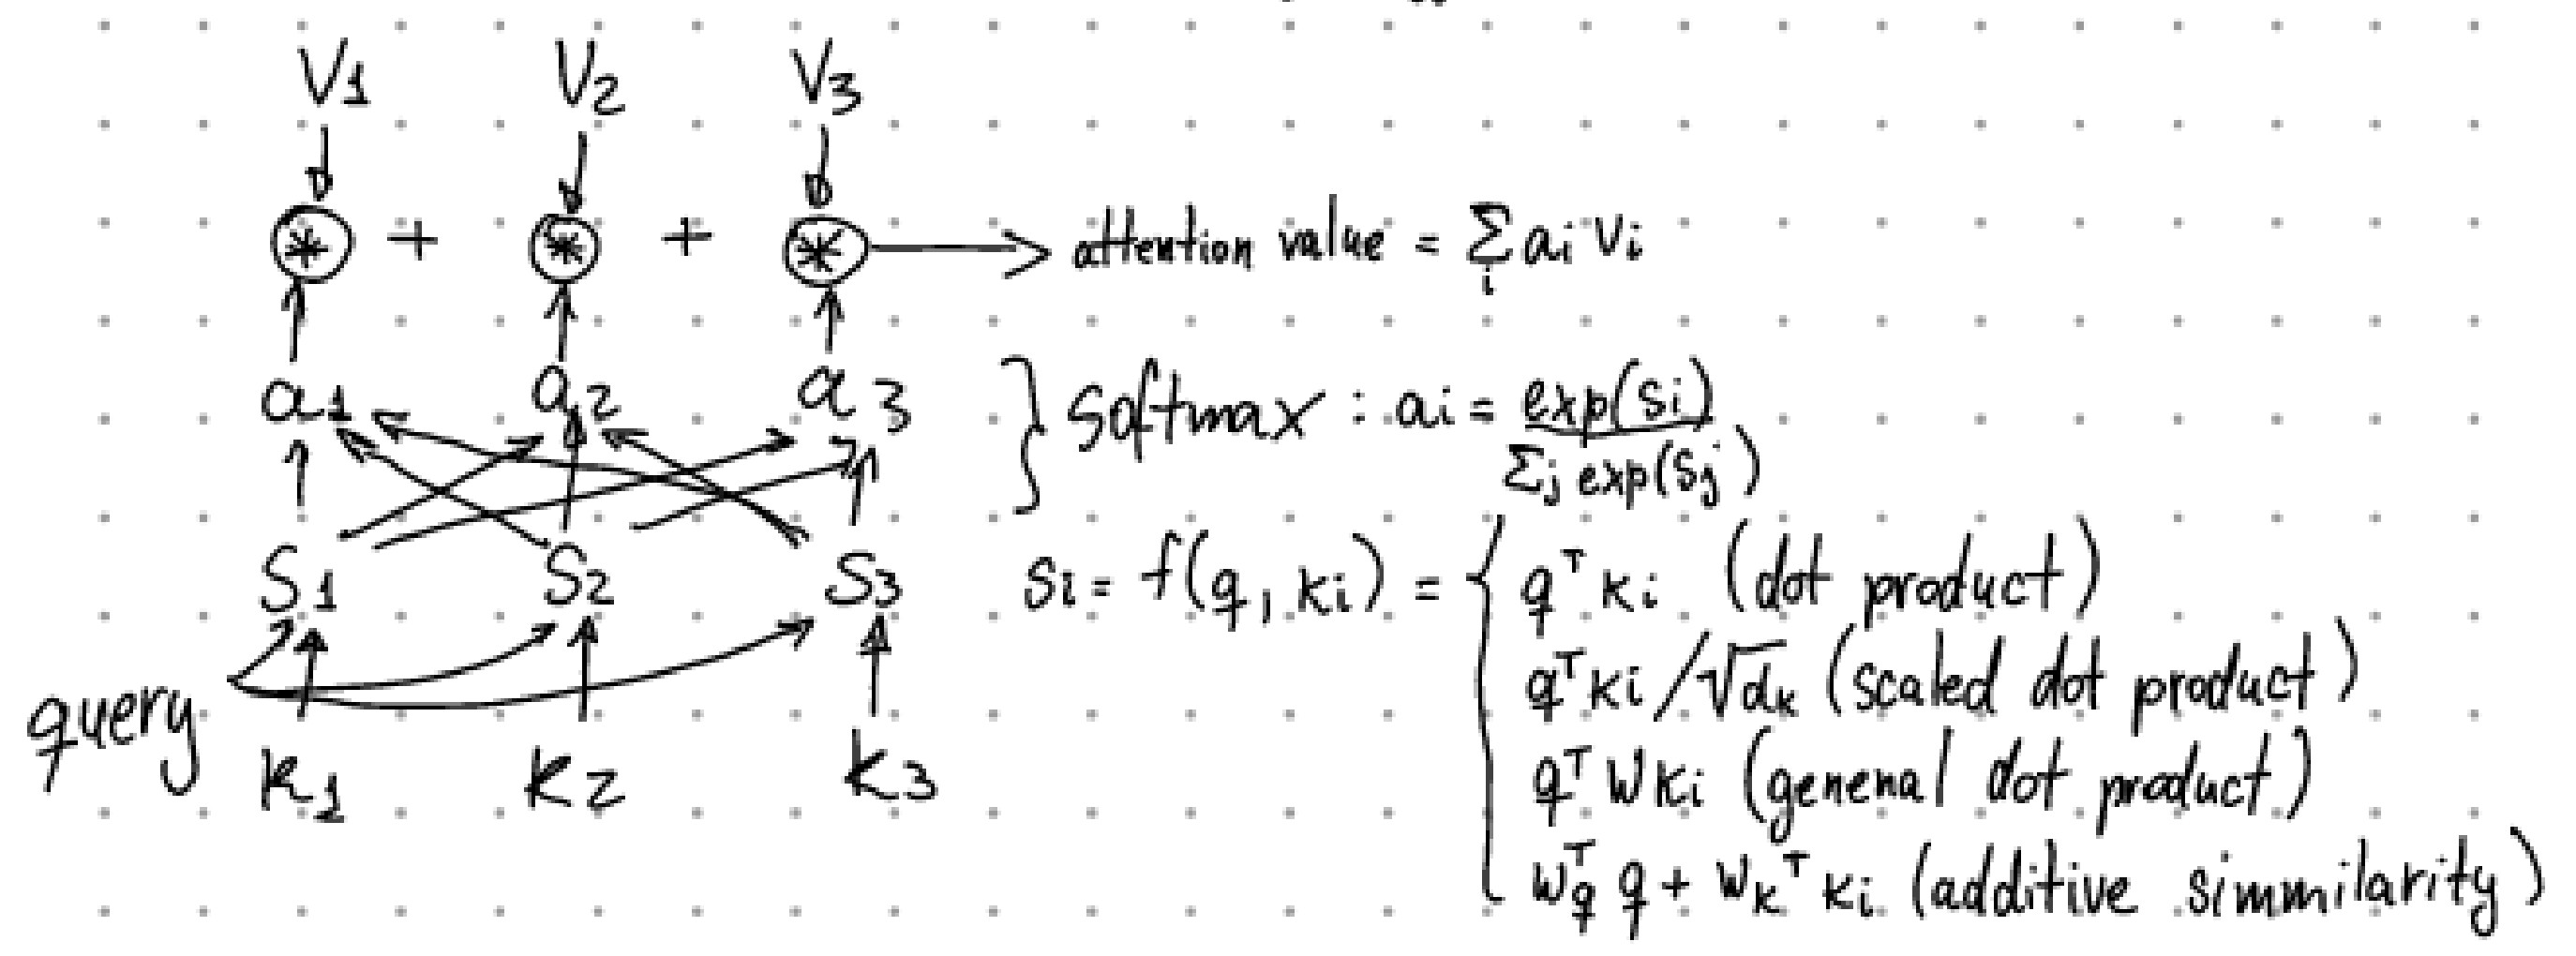 V1 V2 V3
* + * + * → attention value = Σi ai Vi
a1 a2 a3 } Softmax : ai = exp(si) / Σj exp(sj)
S1 S2 S3 si = f(q, ki) = { qᵀ ki (dot product)
qᵀ ki /√dk (scaled dot product)
query
k1 k2 k3 qᵀ W ki (general dot product)
wqᵀ q + wkᵀ ki (additive simmilarity)